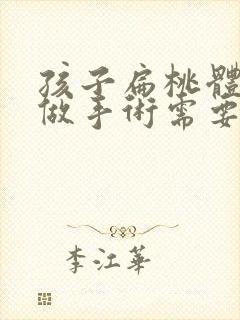 孩子扁桃體
做手術需要
李江華